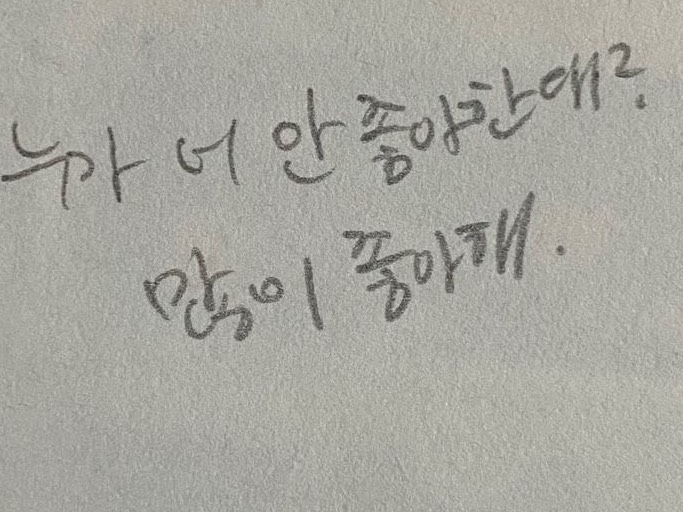 누가 너 안 좋아한대?
많이 좋아해.